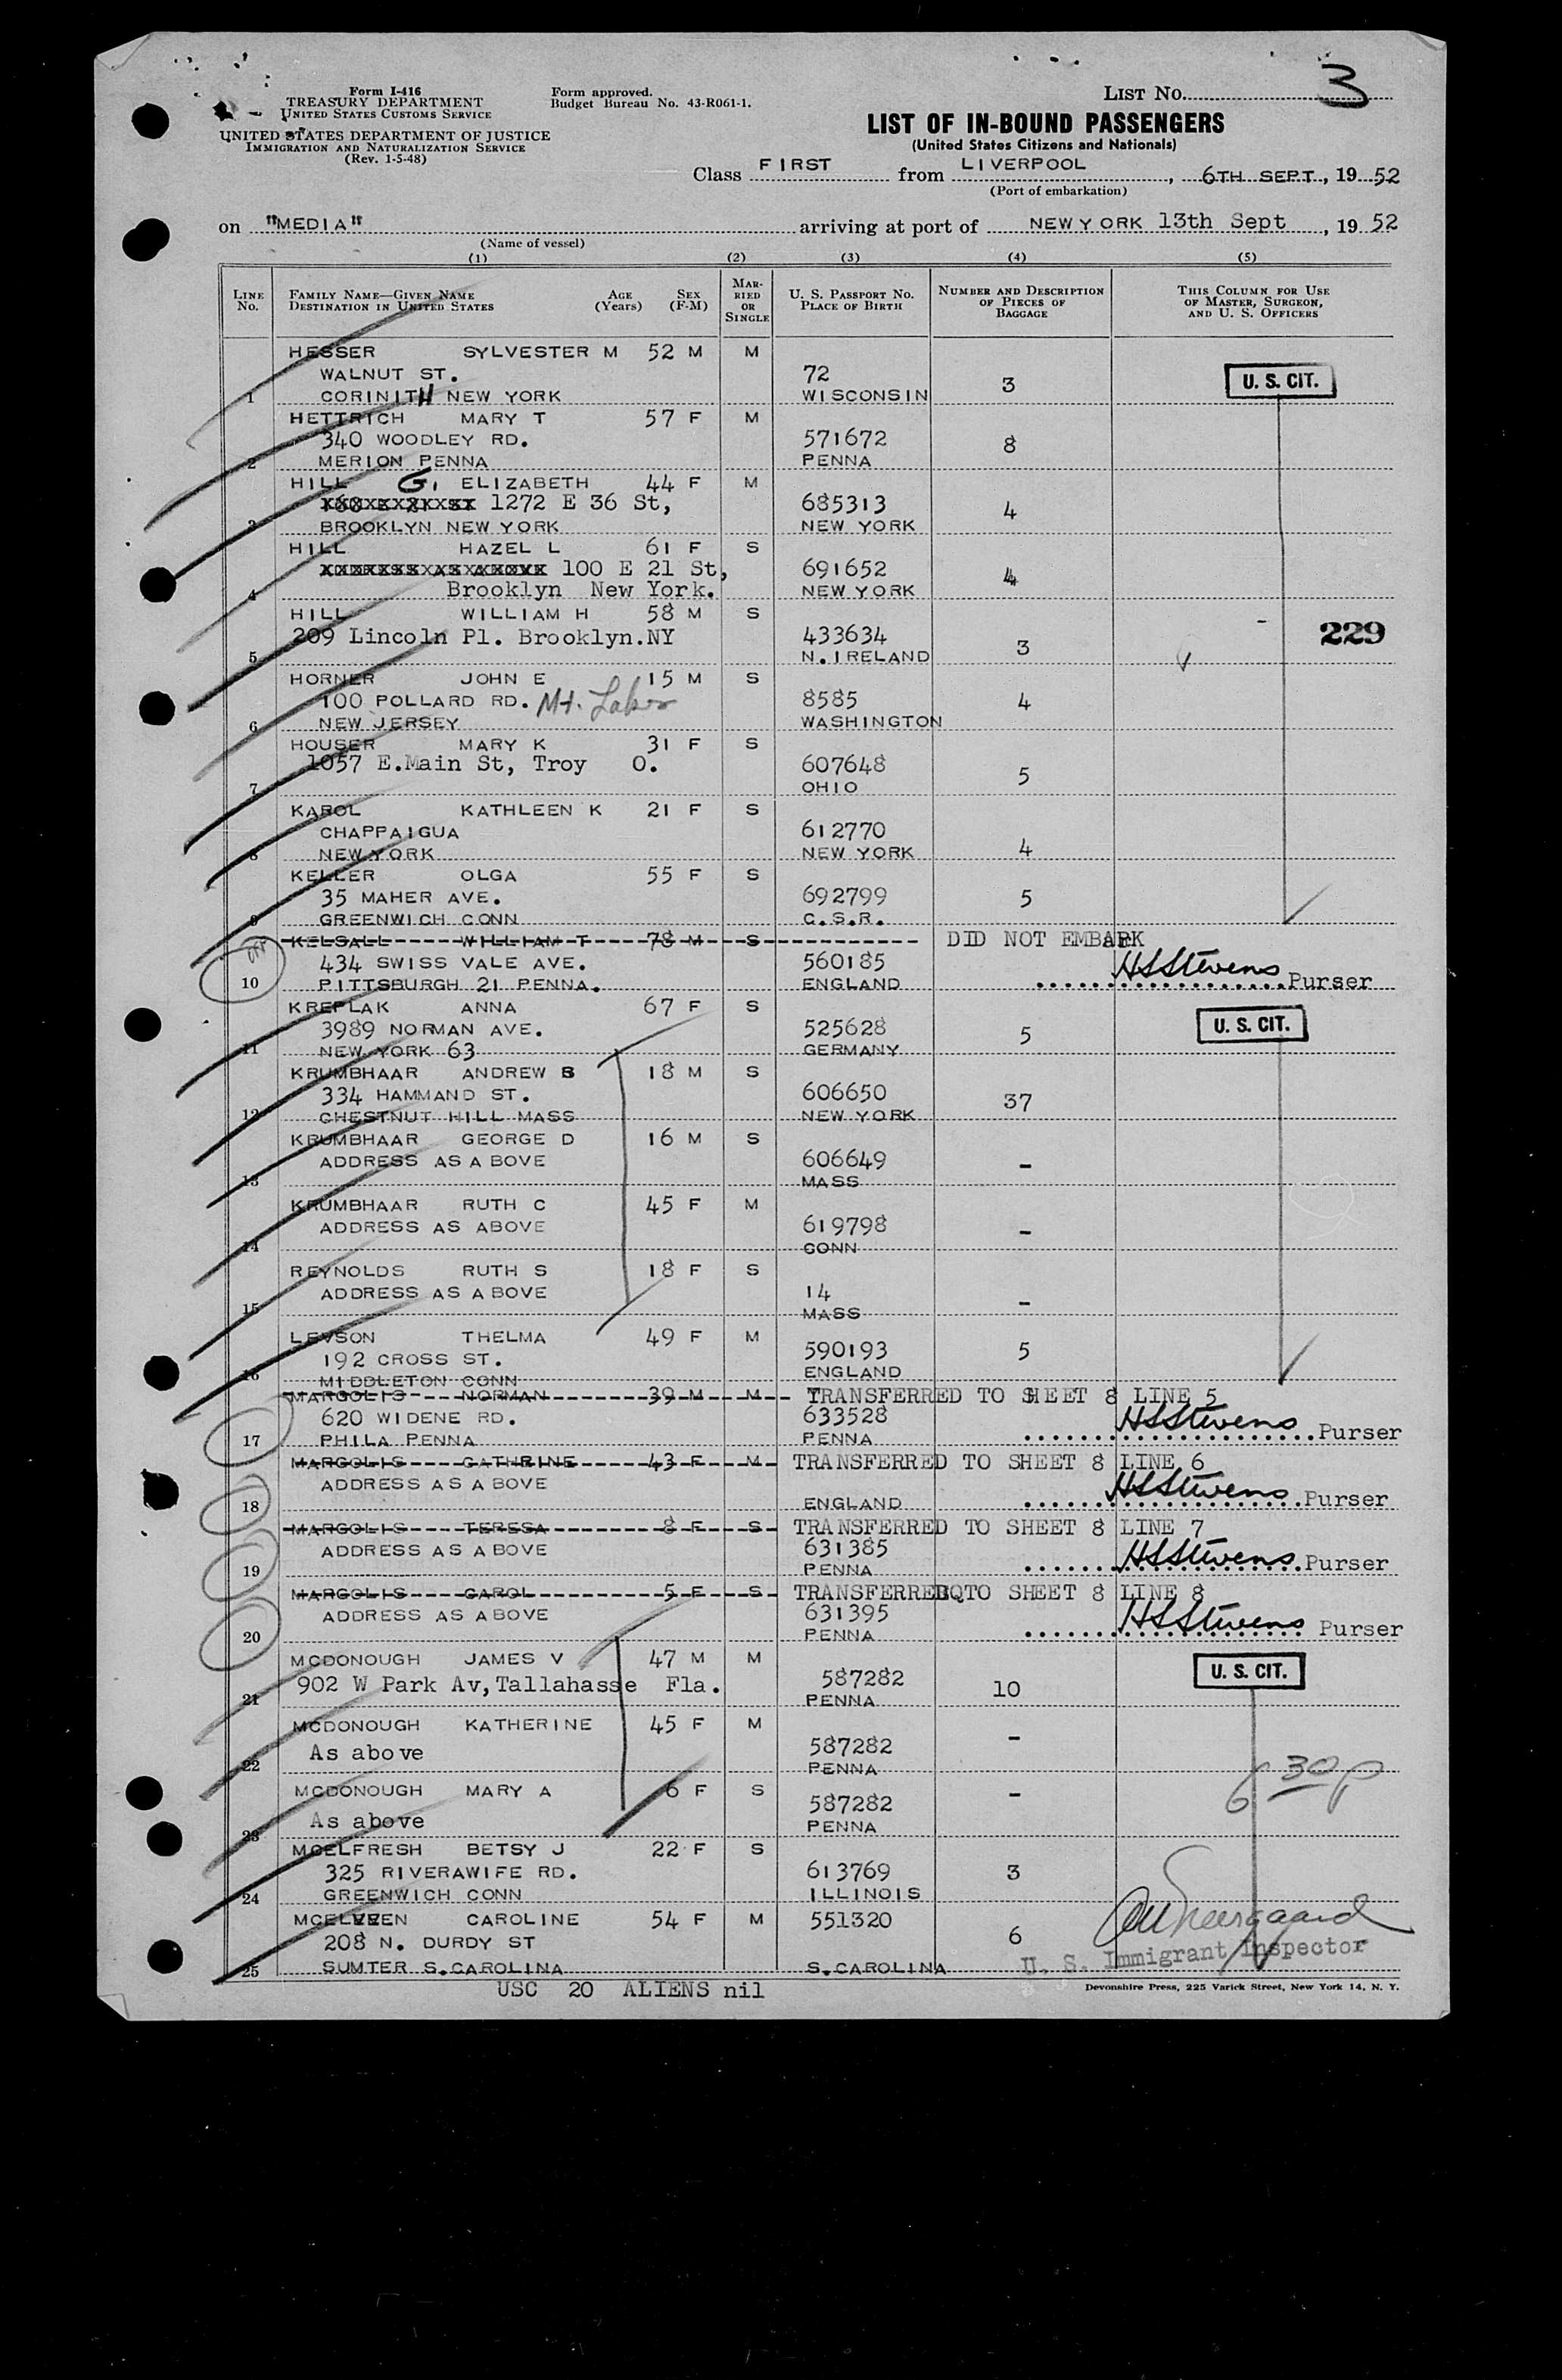 Form I-416
TREASURY DEPARTMENT
UNITED STATES CUSTOMS SERVICE
UNITED STATES DEPARTMENT OF JUSTICE
IMMIGRATION AND NATURALIZATION SERVICE
(Rev. 1-5-48)
Form approved.
Budget Bureau No. 43-R061-1.
LIST NO. 3
LIST OF IN-BOUND PASSENGERS
(United States Citizens and Nationals)
Class FIRST from LIVERPOOL, 6TH SEPT, 19 52
(Port of embarkation)
on "MEDIA" arriving at port of NEW YORK 13th Sept, 19 52
(Name of vessel)
(1) (2) (3) (4) (5)
LINE NO. FAMILY NAME—GIVEN NAME DESTINATION IN UNITED STATES AGE (Years) SEX (F-M) MARRIED OR SINGLE U. S. PASSPORT NO. PLACE OF BIRTH NUMBER AND DESCRIPTION OF PIECES OF BAGGAGE THIS COLUMN FOR USE OF MASTER, SURGEON, AND U. S. OFFICERS
HESSER SYLVESTER M 52 M M
WALNUT ST. 72 3 U. S. CIT.
1 CORINITH NEW YORK WISCONSIN
HETTRICH MARY T 57 F M
340 WOODLEY RD. 571672 8
2 MERION PENNA PENNA
HILL G. ELIZABETH 44 F M
1272 E 36 St, 685313 4
3 BROOKLYN NEW YORK NEW YORK
HILL HAZEL L 61 F S
100 E 21 St, 691652 4
4 Brooklyn New York. NEW YORK
HILL WILLIAM H 58 M S
209 Lincoln Pl. Brooklyn.NY 433634 3 229
5 N.IRELAND
HORNER JOHN E 15 M S
100 POLLARD RD. Mt. 8585 4
6 NEW JERSEY WASHINGTON
HOUSER MARY K 31 F S
1057 E.Main St, Troy O. 607648 5
7 OHIO
KAROL KATHLEEN K 21 F S
CHAPPAIGUA 612770 4
8 NEW YORK NEW YORK
KELLER OLGA 55 F S
35 MAHER AVE. 692799 5
9 GREENWICH CONN C.S.R.
KELSALL WILLIAM T 78 M S DID NOT EMBARK
434 SWISS VALE AVE. 560185 HSStevens
10 PITTSBURGH 21 PENNA. ENGLAND Purser
KREPLAK ANNA 67 F S
3989 NORMAN AVE. 525628 5 U. S. CIT.
11 NEW YORK 63 GERMANY
KRUMBHAAR ANDREW B 18 M S
334 HAMMAND ST. 606650 37
12 CHESTNUT HILL MASS NEW YORK
KRUMBHAAR GEORGE D 16 M S
ADDRESS AS ABOVE 606649 -
13 MASS
KRUMBHAAR RUTH C 45 F M
ADDRESS AS ABOVE 619798 -
14 CONN
REYNOLDS RUTH S 18 F S
ADDRESS AS ABOVE 14 -
15 MASS
LEVSON THELMA 49 F M
192 CROSS ST. 590193 5
16 MIDDLETON CONN ENGLAND
MARGOLIS NORMAN 39 M M TRANSFERRED TO SHEET 8 LINE 5
620 WIDENE RD. 633528 HSStevens
17 PHILA PENNA PENNA Purser
MARGOLIS CATHRINE 43 F M TRANSFERRED TO SHEET 8 LINE 6
ADDRESS AS ABOVE HSStevens
18 ENGLAND Purser
MARGOLIS TERESA 8 F S TRANSFERRED TO SHEET 8 LINE 7
ADDRESS AS ABOVE 631385 HSStevens
19 PENNA Purser
MARGOLIS CAROL 5 F S TRANSFERRED TO SHEET 8 LINE 8
ADDRESS AS ABOVE 631395 HSStevens
20 PENNA Purser
MCDONOUGH JAMES V 47 M M U. S. CIT.
902 W Park Av,Tallahasse Fla. 587282 10
21 PENNA
MCDONOUGH KATHERINE 45 F M
As above 587282 -
22 PENNA 6 30p
MCDONOUGH MARY A 6 F S
As above 587282 -
23 PENNA
MCELFRESH BETSY J 22 F S
325 RIVERAWIFE RD. 613769 3
24 GREENWICH CONN ILLINOIS
MCELVEEN CAROLINE 54 F M 551320
208 N. DURDY ST 6
U. S. Immigrant Inspector
25 SUMTER S.CAROLINA S.CAROLINA
USC 20 ALIENS nil
Devonshire Press, 225 Varick Street, New York 14, N. Y.